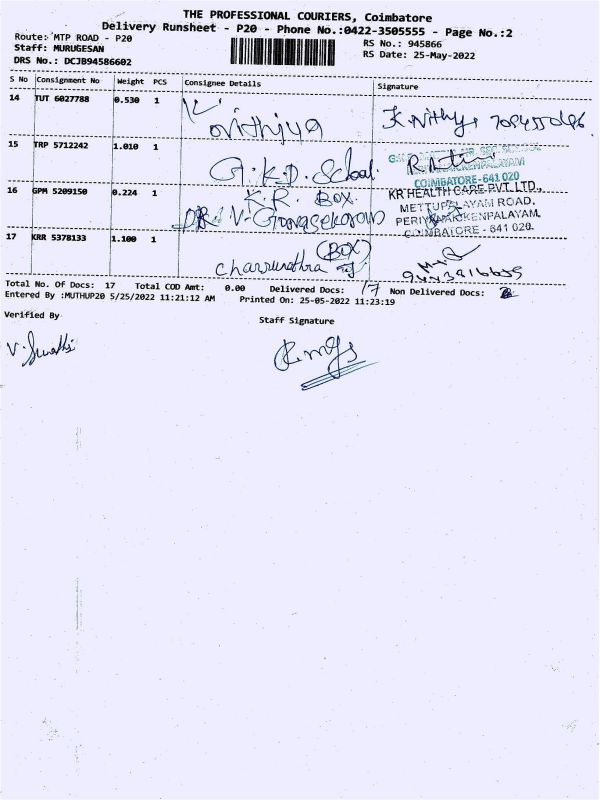 THE PROFESSIONAL COURIERS, Coimbatore
Delivery Runsheet - P20 - Phone No.:0422-3505555 - Page No.:2
Route: MTP ROAD - P20
RS No.: 945866
Staff: MURUGESAN
RS Date: 25-May-2022
DRS No.: DCJB94586602
S No Consignment No Weight PCS Consignee Details Signature
14 TUT 6027788 0.530 1
15 TRP 5712242 1.010 1 G.K.D. School
COIMBATORE-641 020
16 GPM 5209150 0.224 1 K.R. BOX
KR HEALTH CARE PVT. LTD.,
METTUPALAYAM ROAD,
PERIYANAICKENPALAYAM,
COIMBATORE - 641 020.
17 KRR 5378133 1.100 1 (BOX)
Total No. Of Docs: 17 Total COD Amt: 0.00 Delivered Docs: 17 Non Delivered Docs:
Entered By :MUTHUP20 5/25/2022 11:21:12 AM Printed On: 25-05-2022 11:23:19
Verified By
Staff Signature